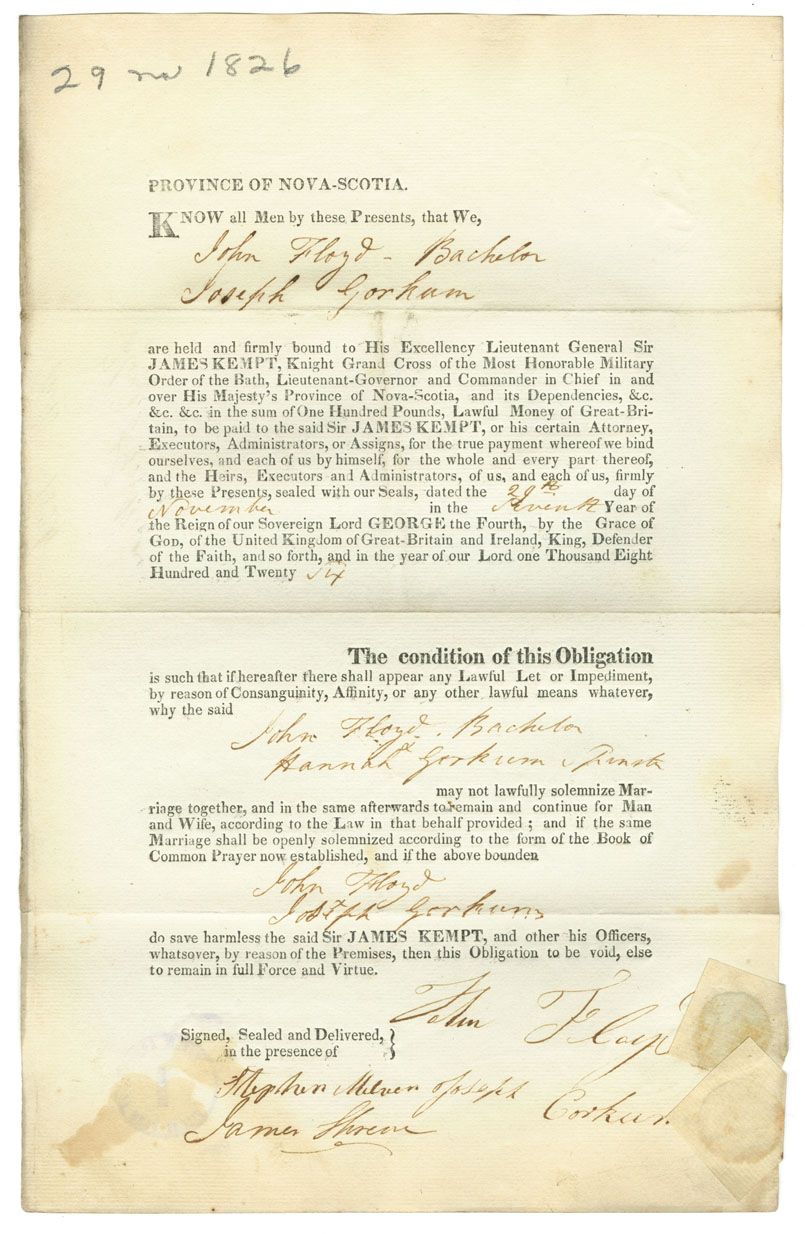 29 no 1826
PROVINCE OF NOVA-SCOTIA.
KNOW all Men by these Presents, that We,
John Floyd - Bachelor
Joseph Gorkum
are held and firmly bound to His Excellency Lieutenant General Sir
JAMES KEMPT, Knight Grand Cross of the Most Honorable Military
Order of the Bath, Lieutenant-Governor and Commander in Chief in and
over His Majesty's Province of Nova-Scotia, and its Dependencies, &c.
&c. &c. in the sum of One Hundred Pounds, Lawful Money of Great-Bri-
tain, to be paid to the said Sir JAMES KEMPT, or his certain Attorney,
Executors, Administrators, or Assigns, for the true payment whereof we bind
ourselves, and each of us by himself, for the whole and every part thereof,
and the Heirs, Executors and Administrators, of us, and each of us, firmly
by these Presents, sealed with our Seals, dated the 29th day of
November in the Seventh Year of
the Reign of our Sovereign Lord GEORGE the Fourth, by the Grace of
GOD, of the United Kingdom of Great-Britain and Ireland, King, Defender
of the Faith, and so forth, and in the year of our Lord one Thousand Eight
Hundred and Twenty Six
The condition of this Obligation
is such that if hereafter there shall appear any Lawful Let or Impediment,
by reason of Consanguinity, Affinity, or any other lawful means whatever,
why the said
John Floyd. Bachelor
&
Hannah Gorkum Spinster
may not lawfully solemnize Mar-
riage together, and in the same afterwards to remain and continue for Man
and Wife, according to the Law in that behalf provided; and if the same
Marriage shall be openly solemnized according to the form of the Book of
Common Prayer now established, and if the above bounden
John Floyd
Joseph Gorkum
do save harmless the said Sir JAMES KEMPT, and other his Officers,
whatsover, by reason of the Premises, then this Obligation to be void, else
to remain in full Force and Virtue.
John Floyd
Signed, Sealed and Delivered, }
in the presence of
Stephen Joseph Corkum
James Shreve